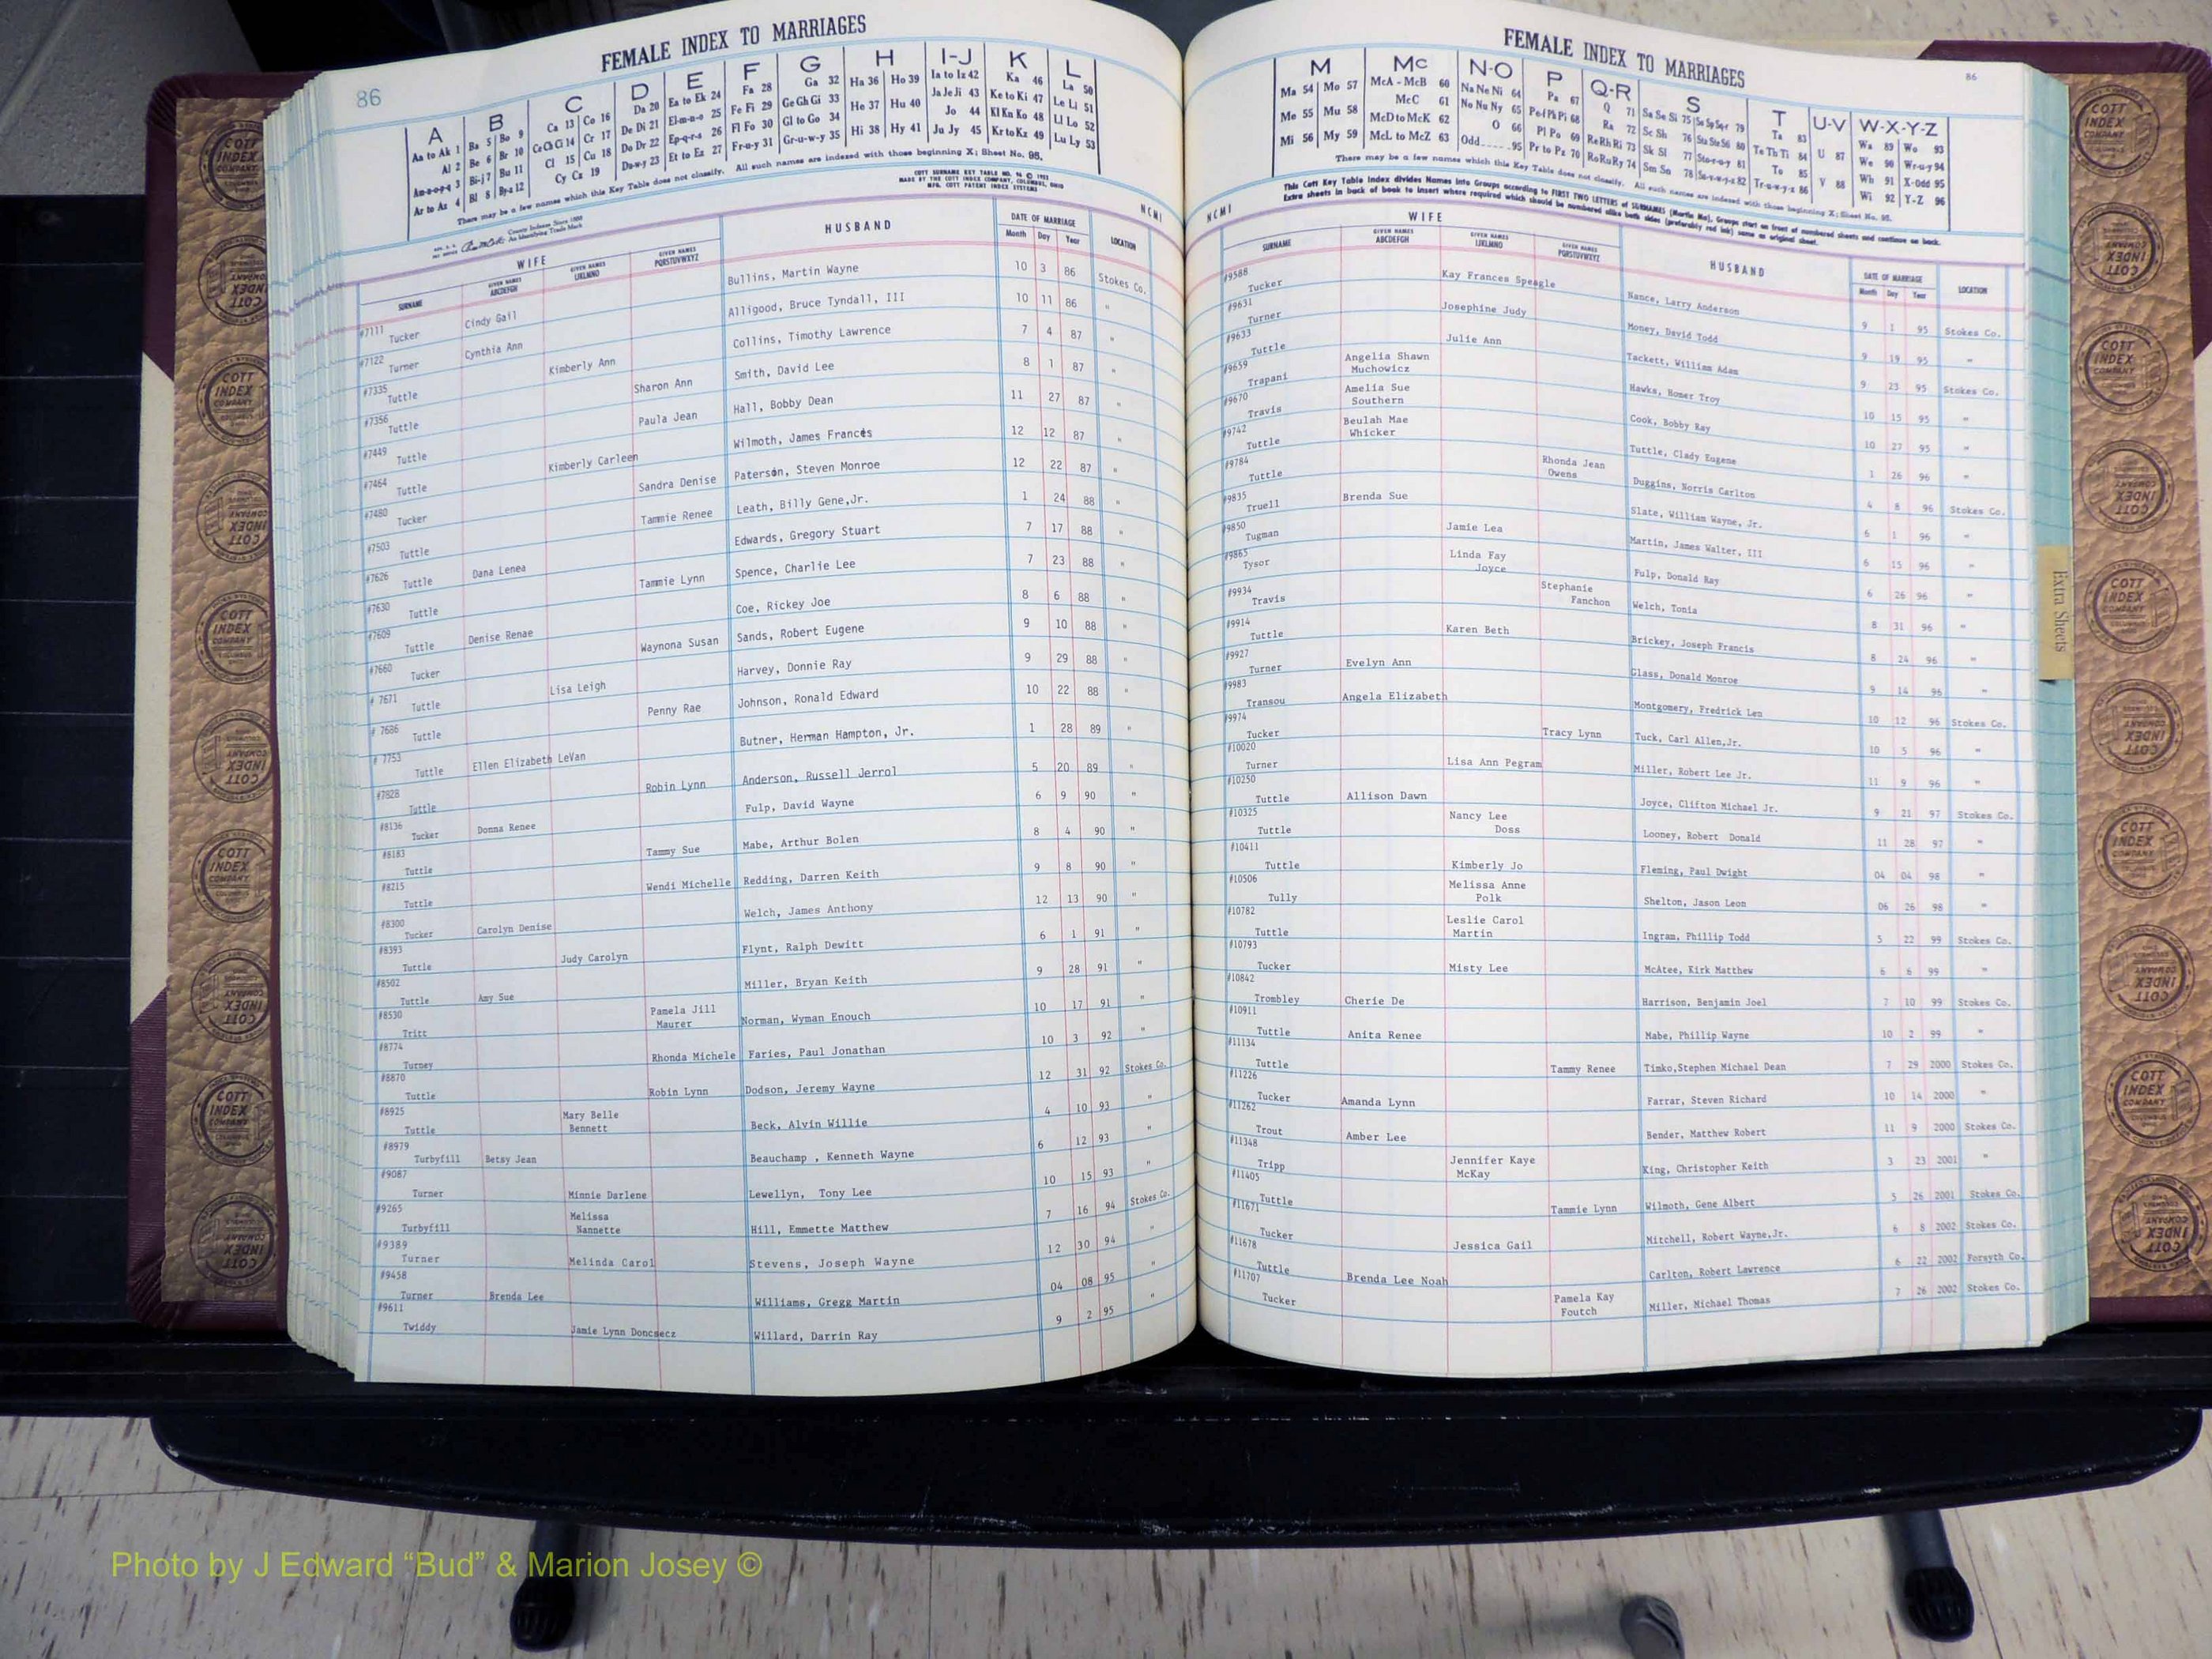 FEMALE INDEX TO MARRIAGES
86
A B C D E F G H I-J K L
Aa to Ak 1 Ba 5 Bo 9 Ca 13 Co 16 Da 20 Ea to Ek 24 Fa 28 Ga 32 Ha 36 Ho 39 Ia to Iz 42 Ka 46 La 50
Al 2 Be 6 Br 10 Ce Ch Ci 14 Cr 17 De Di 21 El-m-n-o 25 Fe Fi 29 Ge Gh Gi 33 He 37 Hu 40 Ja Je Ji 43 Ke to Ki 47 Le Li 51
Am-n-o-p-q 3 Bi-j 7 Bu 11 Cl 15 Cu 18 Do Dr 22 Ep-q-r-s 26 Fl Fo 30 Gl to Go 34 Hi 38 Hy 41 Jo 44 Kl Kn Ko 48 Ll Lo 52
Ar to Az 4 Bl 8 By-z 12 Cy Cz 19 Du-w-y 23 Et to Ez 27 Fr-u-y 31 Gr-u-w-y 35 Ju Jy 45 Kr to Kz 49 Lu Ly 53
There may be a few names which this Key Table does not classify. All such names are indexed with those beginning X; Sheet No. 95.
COTT SURNAME KEY TABLE
MADE BY THE COTT INDEX COMPANY, COLUMBUS, OHIO
MFG. COTT PATENT INDEX SYSTEMS
County Indexes Since 1888
An Identifying Trade Mark
NCMI
WIFE HUSBAND DATE OF MARRIAGE LOCATION
SURNAME GIVEN NAMES ABCDEFGH GIVEN NAMES IJKLMNO GIVEN NAMES PQRSTUVWXYZ Month Day Year
#7111 Tucker Cindy Gail Bullins, Martin Wayne 10 3 86 Stokes Co.
#7122 Turner Cynthia Ann Alligood, Bruce Tyndall, III 10 11 86 "
#7335 Tuttle Kimberly Ann Collins, Timothy Lawrence 7 4 87 "
#7356 Tuttle Sharon Ann Smith, David Lee 8 1 87 "
#7449 Tuttle Paula Jean Hall, Bobby Dean 11 27 87 "
#7464 Tuttle Kimberly Carleen Wilmoth, James Francés 12 12 87 "
#7480 Tucker Sandra Denise Paterson, Steven Monroe 12 22 87 "
#7503 Tuttle Tammie Renee Leath, Billy Gene,Jr. 1 24 88 "
#7626 Tuttle Dana Lenea Edwards, Gregory Stuart 7 17 88 "
#7630 Tuttle Tammie Lynn Spence, Charlie Lee 7 23 88 "
#7609 Tuttle Denise Renae Coe, Rickey Joe 8 6 88 "
#7660 Tucker Waynona Susan Sands, Robert Eugene 9 10 88 "
# 7671 Tuttle Lisa Leigh Harvey, Donnie Ray 9 29 88 "
# 7686 Tuttle Penny Rae Johnson, Ronald Edward 10 22 88 "
# 7753 Tuttle Ellen Elizabeth LeVan Butner, Herman Hampton, Jr. 1 28 89 "
#7828 Tuttle Robin Lynn Anderson, Russell Jerrol 5 20 89 "
#8136 Tucker Donna Renee Fulp, David Wayne 6 9 90 "
#8183 Tuttle Tammy Sue Mabe, Arthur Bolen 8 4 90 "
#8215 Tuttle Wendi Michelle Redding, Darren Keith 9 8 90 "
#8300 Tucker Carolyn Denise Welch, James Anthony 12 13 90 "
#8393 Tuttle Judy Carolyn Flynt, Ralph Dewitt 6 1 91 "
#8502 Tuttle Amy Sue Miller, Bryan Keith 9 28 91 "
#8530 Tritt Pamela Jill Maurer Norman, Wyman Enouch 10 17 91 "
#8774 Turney Rhonda Michele Faries, Paul Jonathan 10 3 92 "
#8870 Tuttle Robin Lynn Dodson, Jeremy Wayne 12 31 92 Stokes Co.
#8925 Tuttle Mary Belle Bennett Beck, Alvin Willie 4 10 93 "
#8979 Turbyfill Betsy Jean Beauchamp , Kenneth Wayne 6 12 93 "
#9087 Turner Minnie Darlene Lewellyn, Tony Lee 10 15 93 "
#9265 Turbyfill Melissa Nannette Hill, Emmette Matthew 7 16 94 Stokes Co.
#9389 Turner Melinda Carol Stevens, Joseph Wayne 12 30 94 "
#9458 Turner Brenda Lee Williams, Gregg Martin 04 08 95 "
#9611 Twiddy Jamie Lynn Doncsecz Willard, Darrin Ray 9 2 95 "
FEMALE INDEX TO MARRIAGES
86
M Mc N-O P Q-R S T U-V W-X-Y-Z
Ma 54 Mo 57 McA - McB 60 Na Ne Ni 64 Pa 67 Q 71 Sa Se Si 75 So Sp Sq-r 79 Ta 83 U 87 Wa 89 Wo 93
Me 55 Mu 58 McC 61 No Nu Ny 65 Pe Pf Ph Pi 68 Ra 72 Sc Sh 76 Sta Ste St 80 Te Th Ti 84 V 88 We 90 Wr-u-y 94
Mi 56 My 59 McD to McK 62 O 66 Pl Po 69 Re Rh Ri 73 Sk Sl 77 Sto-r-u-y 81 To 85 Wh 91 X-Odd 95
McL to McZ 63 Odd 95 Pr to Pz 70 Ro Ru Ry 74 Sm Sn 78 Su-v-w-y-z 82 Tr-u-w-y-z 86 Wi 92 Y-Z 96
There may be a few names which this Key Table does not classify. All such names are indexed with those beginning X; Sheet No. 95.
This Cott Key Table Index divides Names into Groups according to FIRST TWO LETTERS of SURNAMES (Martin Ma), Groups start on front of numbered sheets and continue on back.
Extra sheets in back of book to insert where required which should be numbered alike both sides (preferably red ink) same as original sheet.
NCMI
WIFE HUSBAND DATE OF MARRIAGE LOCATION
SURNAME GIVEN NAMES ABCDEFGH GIVEN NAMES IJKLMNO GIVEN NAMES PQRSTUVWXYZ Month Day Year
#9588 Tucker Kay Frances Speagle Nance, Larry Anderson 9 1 95 Stokes Co.
#9631 Turner Josephine Judy Money, David Todd 9 19 95 "
#9633 Tuttle Julie Ann Tackett, William Adam 9 23 95 Stokes Co.
#9659 Trapani Angelia Shawn Muchowicz Hawks, Homer Troy 10 15 95 "
#9670 Travis Amelia Sue Southern Cook, Bobby Ray 10 27 95 "
#9742 Tuttle Beulah Mae Whicker Tuttle, Clady Eugene 1 26 96 "
#9784 Tuttle Rhonda Jean Owens Duggins, Norris Carlton 4 8 96 Stokes Co.
#9835 Truell Brenda Sue Slate, William Wayne, Jr. 6 1 96 "
#9850 Tugman Jamie Lea Martin, James Walter, III 6 15 96 "
#9865 Tysor Linda Fay Joyce Fulp, Donald Ray 6 26 96 "
#9934 Travis Stephanie Fanchon Welch, Tonia 8 31 96 "
#9914 Tuttle Karen Beth Brickey, Joseph Francis 8 24 96 "
#9927 Turner Evelyn Ann Glass, Donald Monroe 9 14 96 "
#9983 Transou Angela Elizabeth Montgomery, Fredrick Len 10 12 96 Stokes Co.
#9974 Tucker Tracy Lynn Tuck, Carl Allen,Jr. 10 5 96 "
#10020 Turner Lisa Ann Pegram Miller, Robert Lee Jr. 11 9 96 "
#10250 Tuttle Allison Dawn Joyce, Clifton Michael Jr. 9 21 97 Stokes Co.
#10325 Tuttle Nancy Lee Doss Looney, Robert Donald 11 28 97 "
#10411 Tuttle Kimberly Jo Fleming, Paul Dwight 04 04 98 "
#10506 Tully Melissa Anne Polk Shelton, Jason Leon 06 26 98 "
#10782 Tuttle Leslie Carol Martin Ingram, Phillip Todd 5 22 99 Stokes Co.
#10793 Tucker Misty Lee McAtee, Kirk Matthew 6 6 99 "
#10842 Trombley Cherie De Harrison, Benjamin Joel 7 10 99 Stokes Co.
#10911 Tuttle Anita Renee Mabe, Phillip Wayne 10 2 99 "
#11134 Tuttle Tammy Renee Timko,Stephen Michael Dean 7 29 2000 Stokes Co.
#11226 Tucker Amanda Lynn Farrar, Steven Richard 10 14 2000 "
#11262 Trout Amber Lee Bender, Matthew Robert 11 9 2000 Stokes Co.
#11348 Tripp Jennifer Kaye McKay King, Christopher Keith 3 23 2001 "
#11405 Tuttle Tammie Lynn Wilmoth, Gene Albert 5 26 2001 Stokes Co.
#11671 Tucker Jessica Gail Mitchell, Robert Wayne,Jr. 6 8 2002 Stokes Co.
#11678 Tuttle Brenda Lee Noah Carlton, Robert Lawrence 6 22 2002 Forsyth Co.
#11707 Tucker Pamela Kay Foutch Miller, Michael Thomas 7 26 2002 Stokes Co.
Extra Sheets
COTT INDEX COMPANY
Photo by J Edward “Bud” & Marion Josey ©